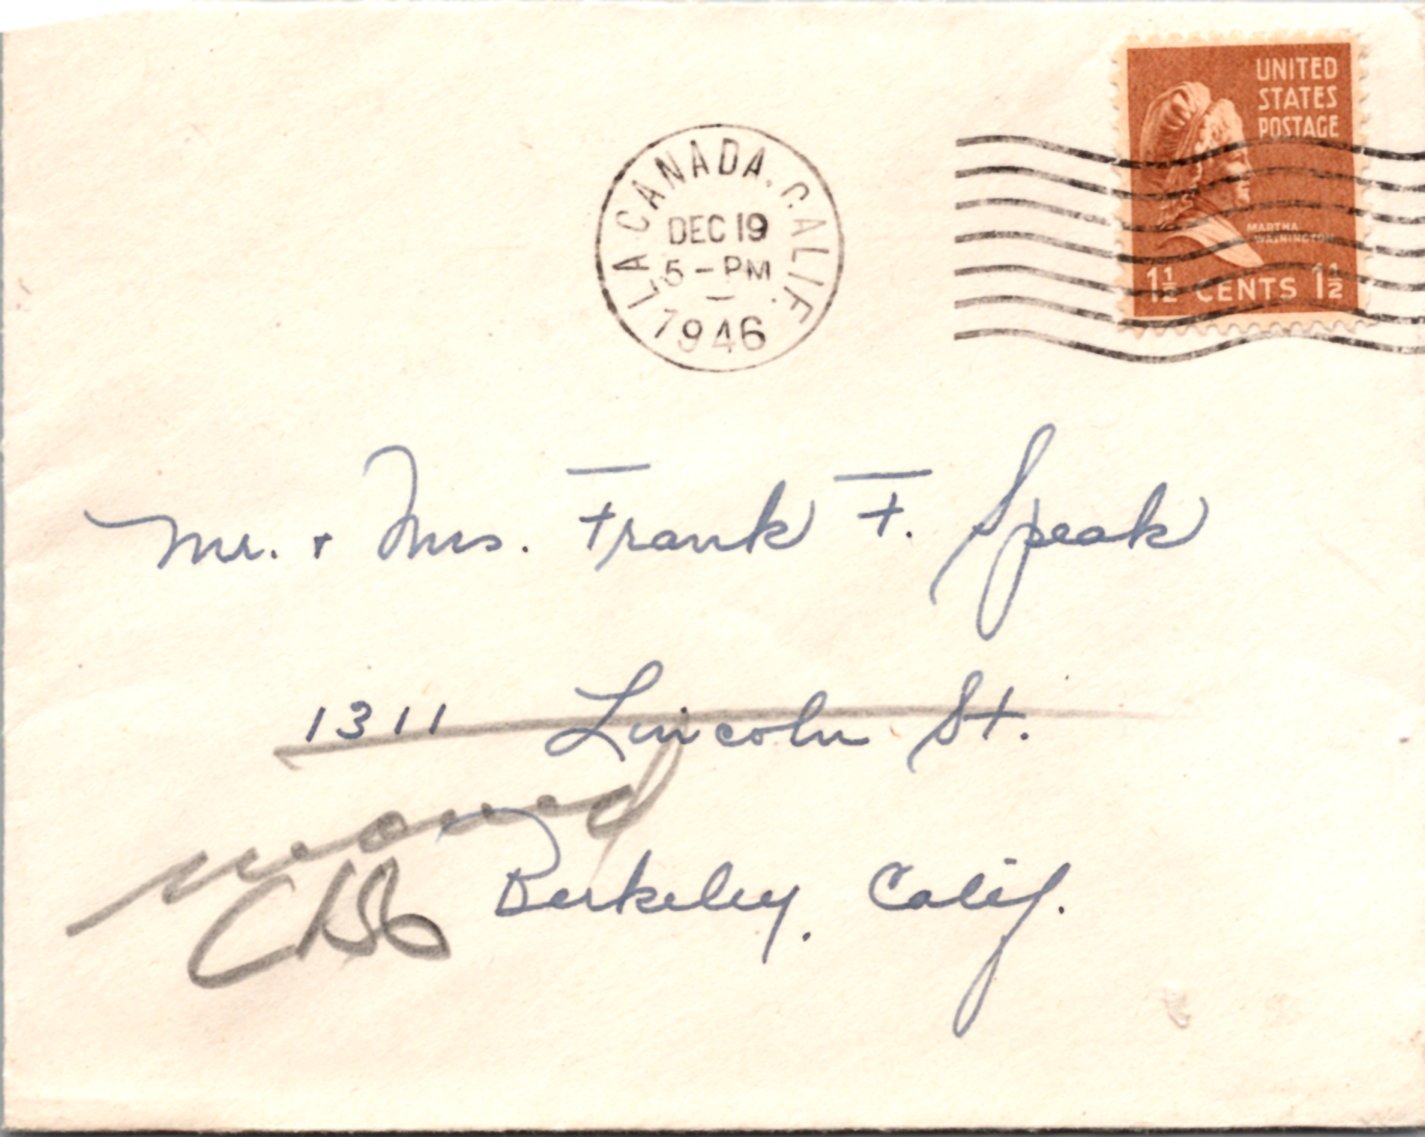 UNITED
STATES
POSTAGE
MARTHA
WASHINGTON
1½ CENTS 1½
LA CANADA. CALIF.
DEC 19
5-PM
1946
Mr. + Mrs. Frank F. Speak
1311 Lincoln St.
moved
Berkeley, Calif.